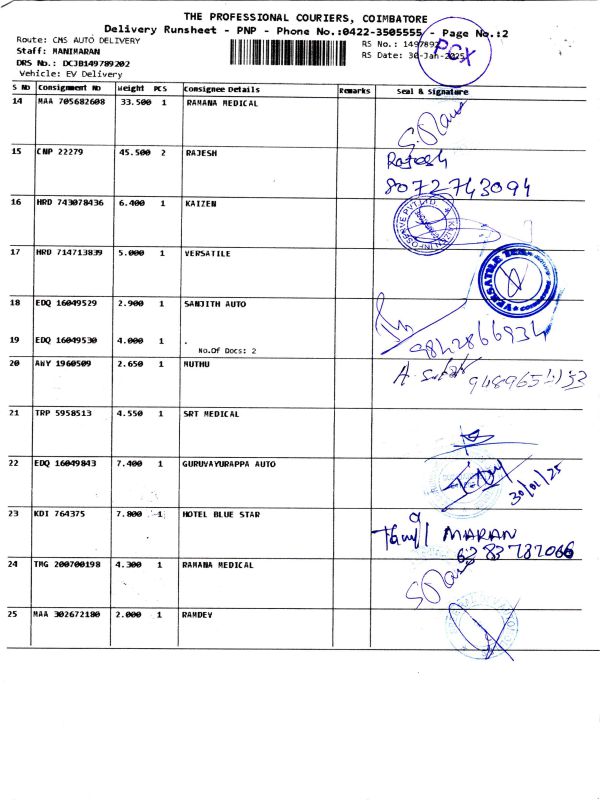 THE PROFESSIONAL COURIERS, COIMBATORE
Delivery Runsheet - PNP - Phone No.:0422-3505555 - Page No.:2
Route: CMS AUTO DELIVERY
RS No.: 1497892
Staff: MANIMARAN
RS Date: 30-Jan-2025
DRS No.: DCJB149789202
Vehicle: EV Delivery
PCX
S No Consignment No Weight PCS Consignee Details Remarks Seal & Signature
14 MAA 705682608 33.500 1 RAMANA MEDICAL
15 CNP 22279 45.500 2 RAJESH Rajesh
8072743094
16 HRD 743078436 6.400 1 KAIZEN
17 HRD 714713839 5.000 1 VERSATILE
18 EDQ 16049529 2.900 1 SANJITH AUTO
19 EDQ 16049530 4.000 1 . 9842866934
No.Of Docs: 2
20 AWY 1960509 2.650 1 MUTHU
21 TRP 5958513 4.550 1 SRT MEDICAL
22 EDQ 16049843 7.400 1 GURUVAYURAPPA AUTO
30/01/25
23 KDI 764375 7.800 1 HOTEL BLUE STAR
MARAN
24 TMG 200700198 4.300 1 RAMANA MEDICAL
25 MAA 302672180 2.000 1 RAMDEV